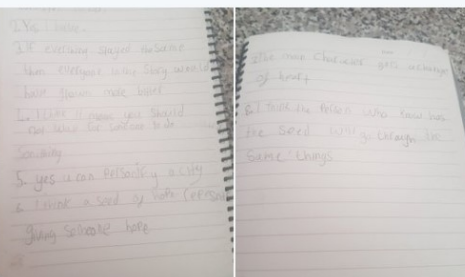 2. Yes I
3. If everyone stayed the same
then everyone in the story would
have grown more bitter
4. I think it means you should
not wait for someone to do
Something
5. yes u can Personify a city
6. I think a seed of hope
giving someone hope
7. The main Character gets a change
of heart
8. I think the Person who
the seed through the
same things